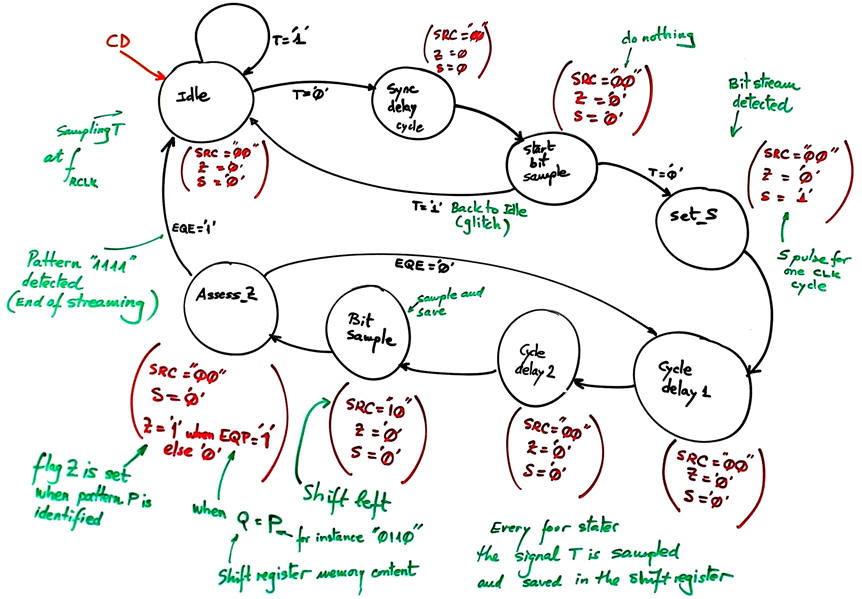 CD
T='1'
Idle
T='0'
Sync
delay
cycle
(SRC="00"
Z=0
S=0)
do nothing
(SRC="00"
Z='0'
S='0')
Bit stream
detected
Sampling T
at fRCLK
(SRC="00"
Z='0'
S='0')
Start
bit
sample
T='0'
(SRC="00"
Z='0'
S='1')
set_S
T='1' Back to Idle
(glitch)
EQE='1'
S pulse for
one CLK
cycle
Pattern "1111"
detected
(End of streaming)
EQE='0'
Assess_Z
sample and
save
Bit
Sample
Cycle
delay 2
Cycle
delay 1
(SRC="00"
S='0'
Z='1' when EQP='1'
else '0')
(SRC="10"
Z='0'
S='0')
(SRC="00"
Z='0'
S='0')
(SRC="00"
Z='0'
S='0')
flag Z is set
when pattern P is
identified
when
Q = P
for instance "0110"
Shift left
Shift register memory content
Every four states
the signal T is sampled
and saved in the shift register